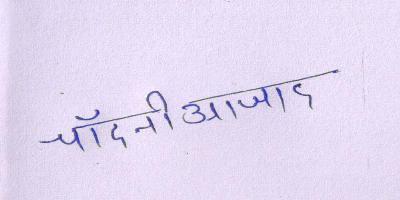 चाँदनी आजाद